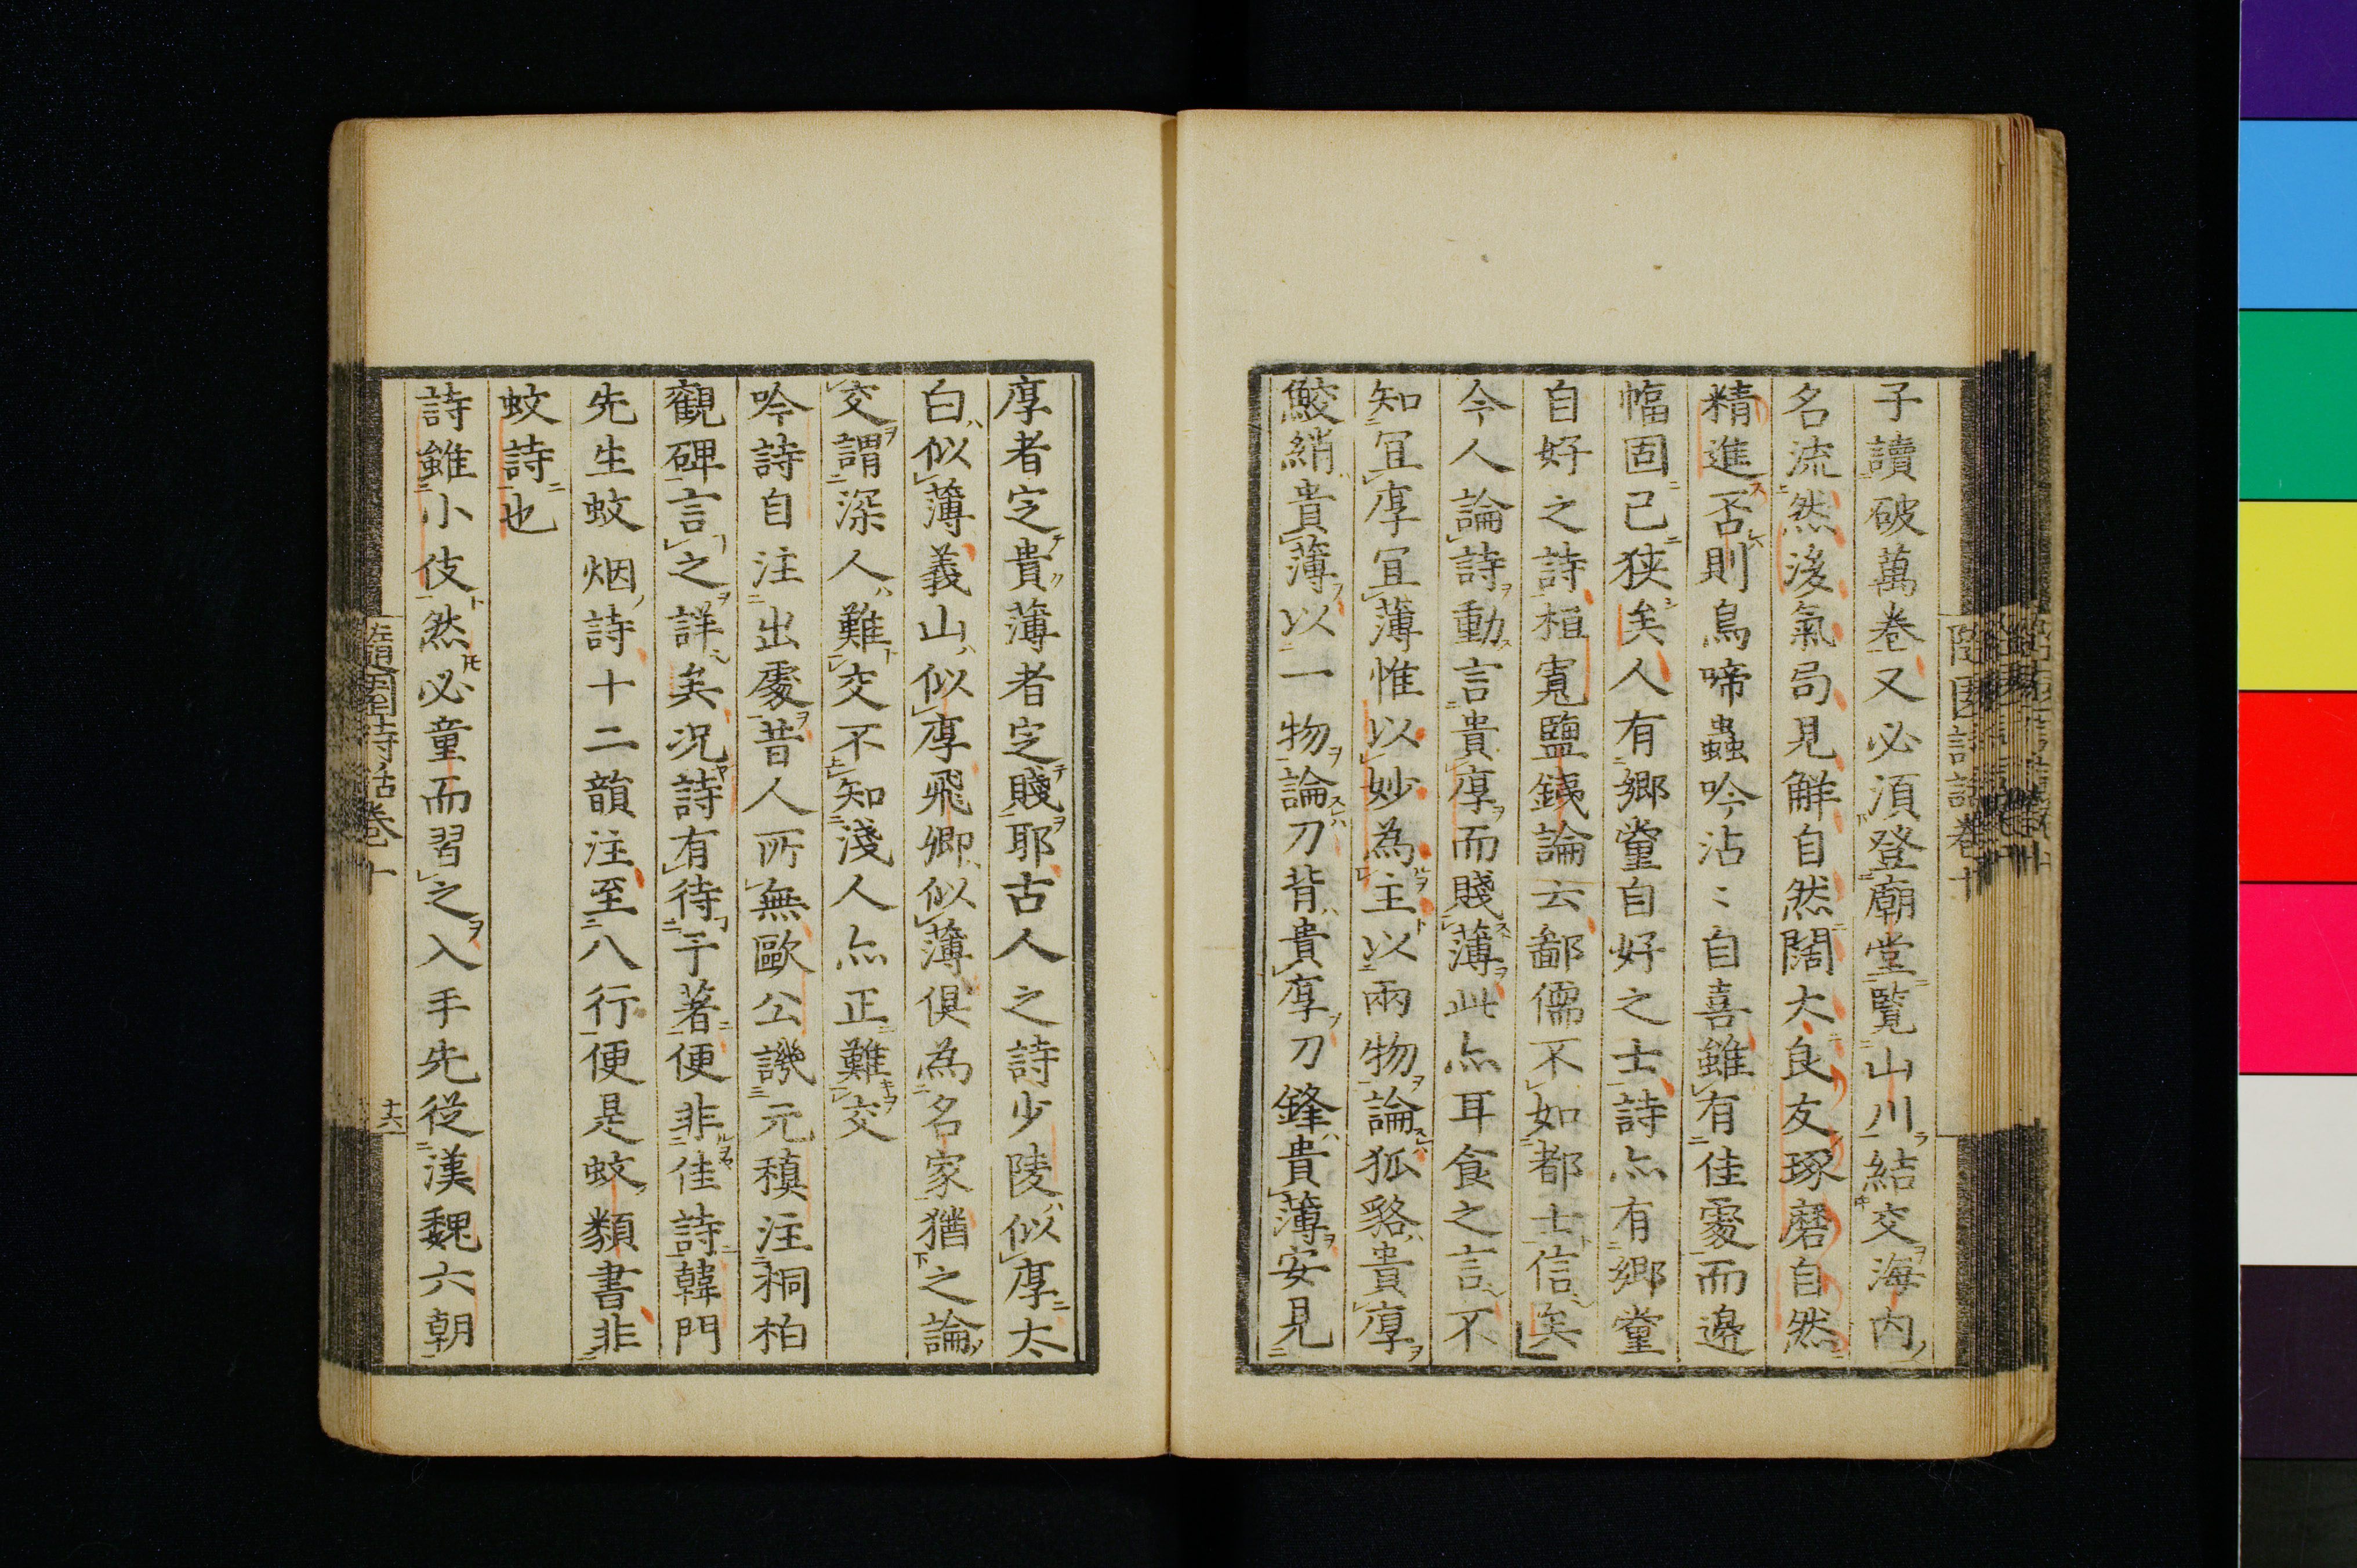 子讀破萬卷又必須登廟堂覧山川結交海内
名流然後氣局見解自然闊大良友琢磨自然
精進否則鳥啼蟲吟沾〻自喜雖有佳處而邊
幅固已狹矣人有鄉黨自好之士詩亦有鄉黨
自好之詩桓寬鹽鐵論云鄙儒不如都士信矣
今人論詩動言貴厚而賤薄此亦耳食之言不
知宜厚宜薄惟以妙為主以兩物論狐貉貴厚
鮫綃貴薄以一物論刀背貴厚刀鋒貴薄安見
隨園詩話卷十
厚者定貴薄者定賤耶古人之詩少陵似厚太
白似薄義山似厚飛卿似薄俱為名家猶之論
交謂深人難交不知淺人亦正難交
吟詩自注出處昔人所無歐公譏元稹注桐柏
觀碑言之詳矣況詩有待于著便非佳詩韓門
先生蚊烟詩十二韻注至八行便是蚊類書非
蚊詩也
詩雖小伎然必童而習之入手先從漢魏六朝
隨園詩話卷十
十六